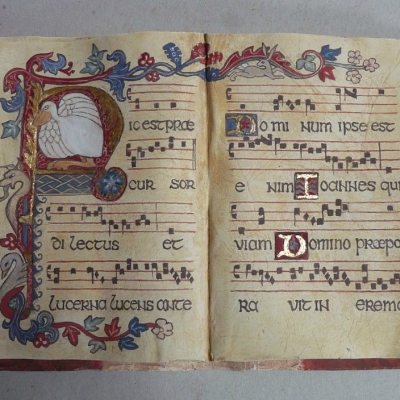 HIC EST PRÆ
CUR SOR
DI LECTUS ET
LUCERNA LUCENS ANTE
DO MI NUM IPSE EST
E NIM IOANNES QUI
VIAM DOMINO PRÆPA
RA VIT IN EREMO